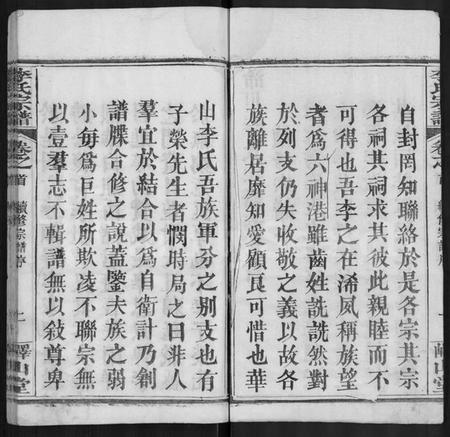 自封罔知聯絡於是各宗其宗
各祠其祠求其彼此親睦而不
可得也吾李之在浠夙稱族望
者爲六神港雖齒姓詵詵然對
於別支仍失收敬之義以故各
族離居靡知愛顧良可惜也華
山李氏吾族軍分之別支也有
子榮先生者憫時局之日非人
羣宜於結合以爲自衛計乃創
譜牒合修之說蓋鑒夫族之弱
小每爲巨姓所欺凌不聯宗無
以壹羣志不輯譜無以敍尊卑
李氏宗譜
卷之首
續修宗譜序